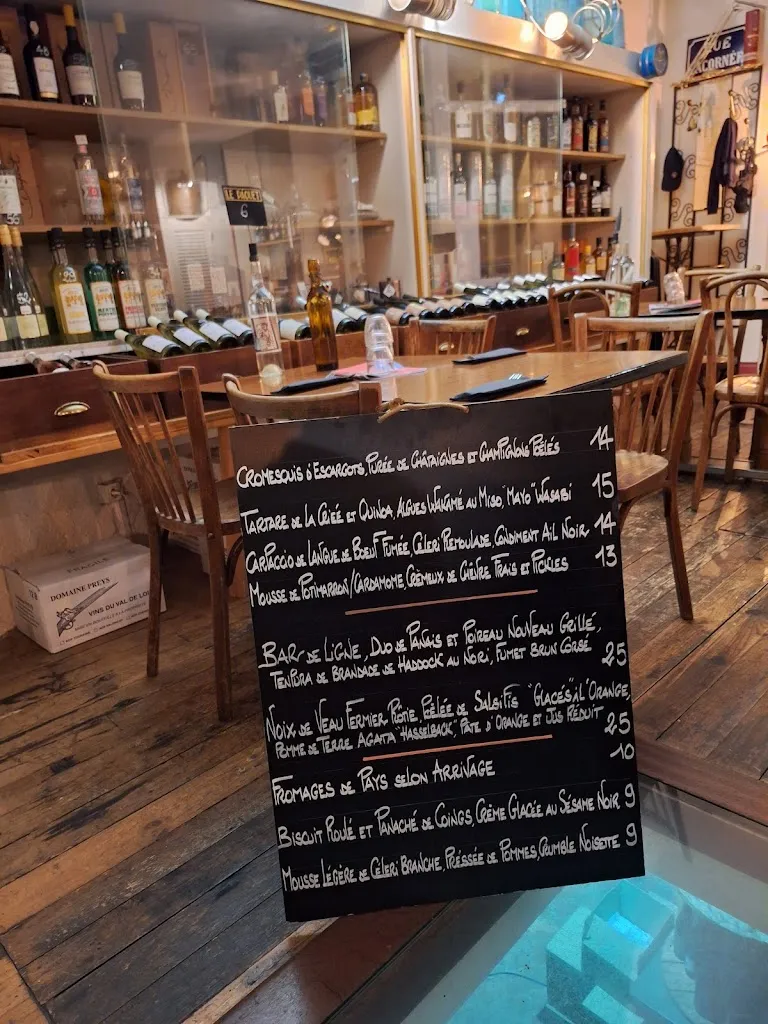 RUE
LE PAQUET
6
FRAGILE
DOMAINE PREYS
VINS DU VAL DE
CROMESQUIS D'ESCARGOTS, PURÉE DE CHÂTAIGNES ET CHAMPIGNONS POÊLÉS 14
TARTARE DE LA CRIÉE ET QUINOA, ALGUES WAKAMÉ AU MISO, "MAYO" WASABI 15
CARPACCIO DE LANGUE DE BOEUF FUMÉE, CÉLERI REMOULADE, CONDIMENT AIL NOIR 14
MOUSSE DE POTIMARRON/CARDAMOME, CRÉMEUX DE CHÈVRE FRAIS ET PICKLES 13
BAR DE LIGNE, DUO DE PANAIS ET POIREAU NOUVEAU GRILLÉ,
TEMPURA DE BRANDADE DE HADDOCK AU NORI, FUMET BRUN CORSÉ 25
NOIX DE VEAU FERMIER RÔTIE, POÊLÉE DE SALSIFIS "GLACÉS" À L'ORANGE,
POMME DE TERRE AGATA "HASSELBACK", PÂTE D'ORANGE ET JUS RÉDUIT 25
FROMAGES DE PAYS SELON ARRIVAGE 10
BISCUIT ROULÉ ET PANACHÉ DE COINGS, CRÈME GLACÉE AU SÉSAME NOIR 9
MOUSSE LÉGÈRE DE CÉLERI BRANCHE, PRESSÉE DE POMMES, CRUMBLE NOISETTE 9